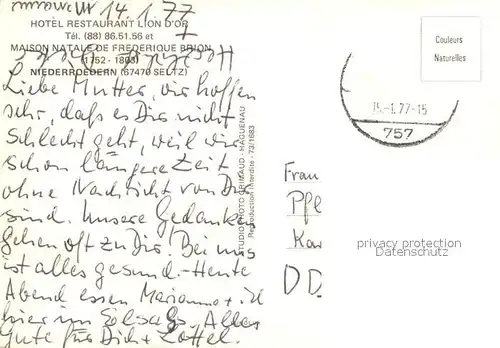 14.1.77
HOTEL RESTAURANT LION D'OR
Tél. (88) 86.51.56 et
MAISON NATALE DE FREDERIQUE BRION
(1752 - 1803)
NIEDERROEDERN (67470 SELTZ)
Liebe Mutter, wir hoffen
sehr, daß es Dir nicht
schlecht geht, weil wir
schon längere Zeit
ohne Nachricht von Dir
sind. Unsere Gedanken
gehen oft zu Dir. Bei uns
ist alles gesund. - Heute
Abend essen Marianne + ich
hier im Elsaß. Alles
Gute für Dich + Lottel.
STUDIO PHOTO GRIMAUD - HAGUENAU
Reproduction interdite - 72/1683
Couleurs
Naturelles
15.-1.77-15
757
Frau
Pfl
Kar
DD
privacy protection
Datenschutz